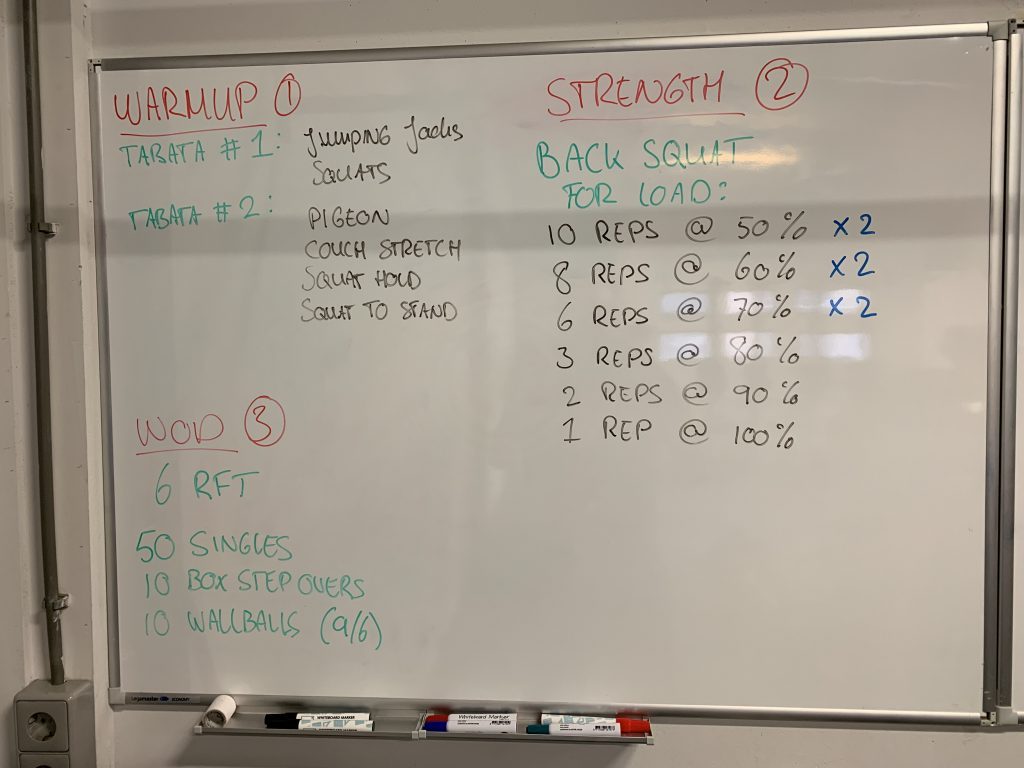 WARMUP 1
TABATA # 1: Jumping Jacks
SQUATS
TABATA # 2: PIGEON
COUCH STRETCH
SQUAT HOLD
SQUAT TO STAND
STRENGTH 2
BACK SQUAT
FOR LOAD:
10 REPS @ 50% X2
8 REPS @ 60% X2
6 REPS @ 70% X2
3 REPS @ 80%
2 REPS @ 90%
1 REP @ 100%
WOD 3
6 RFT
50 SINGLES
10 BOX STEP OVERS
10 WALLBALLS (9/6)
Legamaster ECONOMY
WHITEBOARD MARKER
Whiteboard Marker